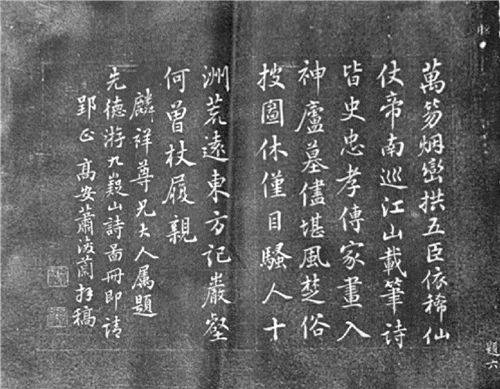 萬笏烟巒拱五臣依稀仙
仗帝南巡江山載筆詩
皆史忠孝傳家畫入
神廬墓儘堪風楚俗
披圖休僅目騷人十
洲荒遠東方記巖壑
何曾杖履親
麟祥尊兄大人属題
先德游九嶷山詩啚冊即請
郢正 高安蕭浚蘭拜稿
題六